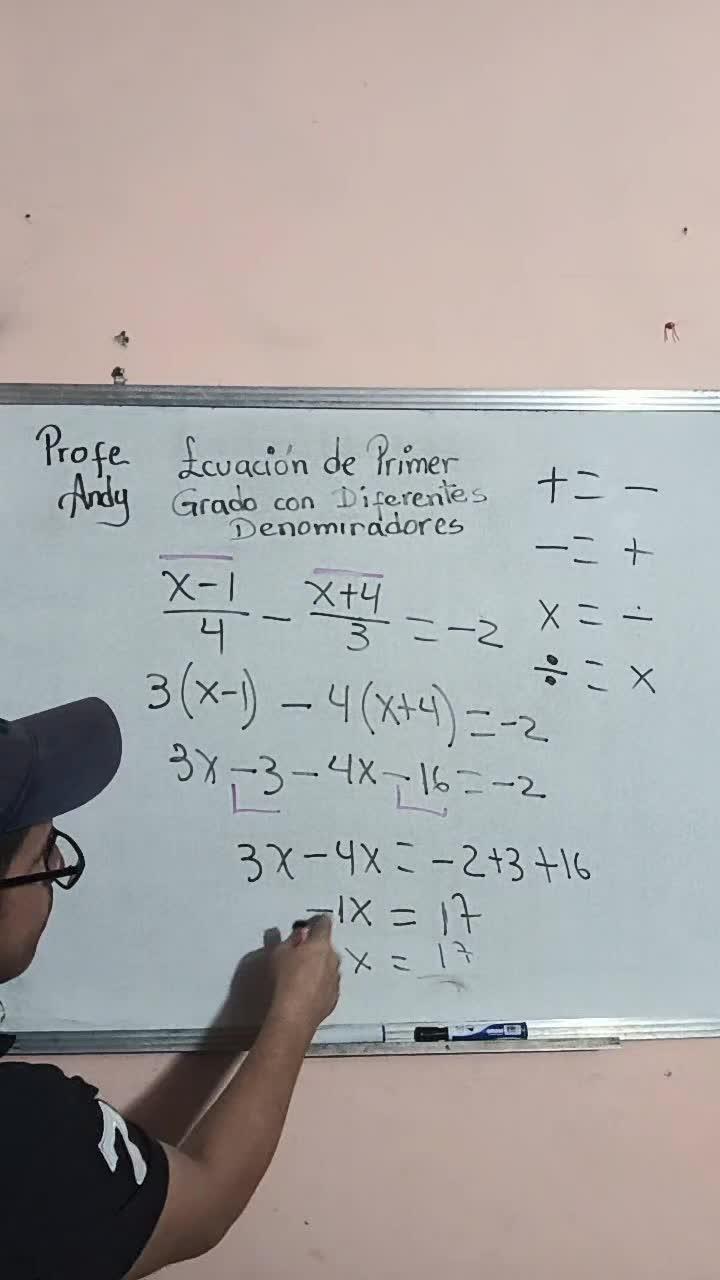 Profe
Andy
Ecuación de Primer
Grado con Diferentes
Denominadores
+ = -
- = +
x = ÷
÷ = x
x-1/4 - x+4/3 = -2
3(x-1) - 4(x+4) = -2
3x - 3 - 4x - 16 = -2
3x - 4x = -2+3+16
-1x = 17
x = 17